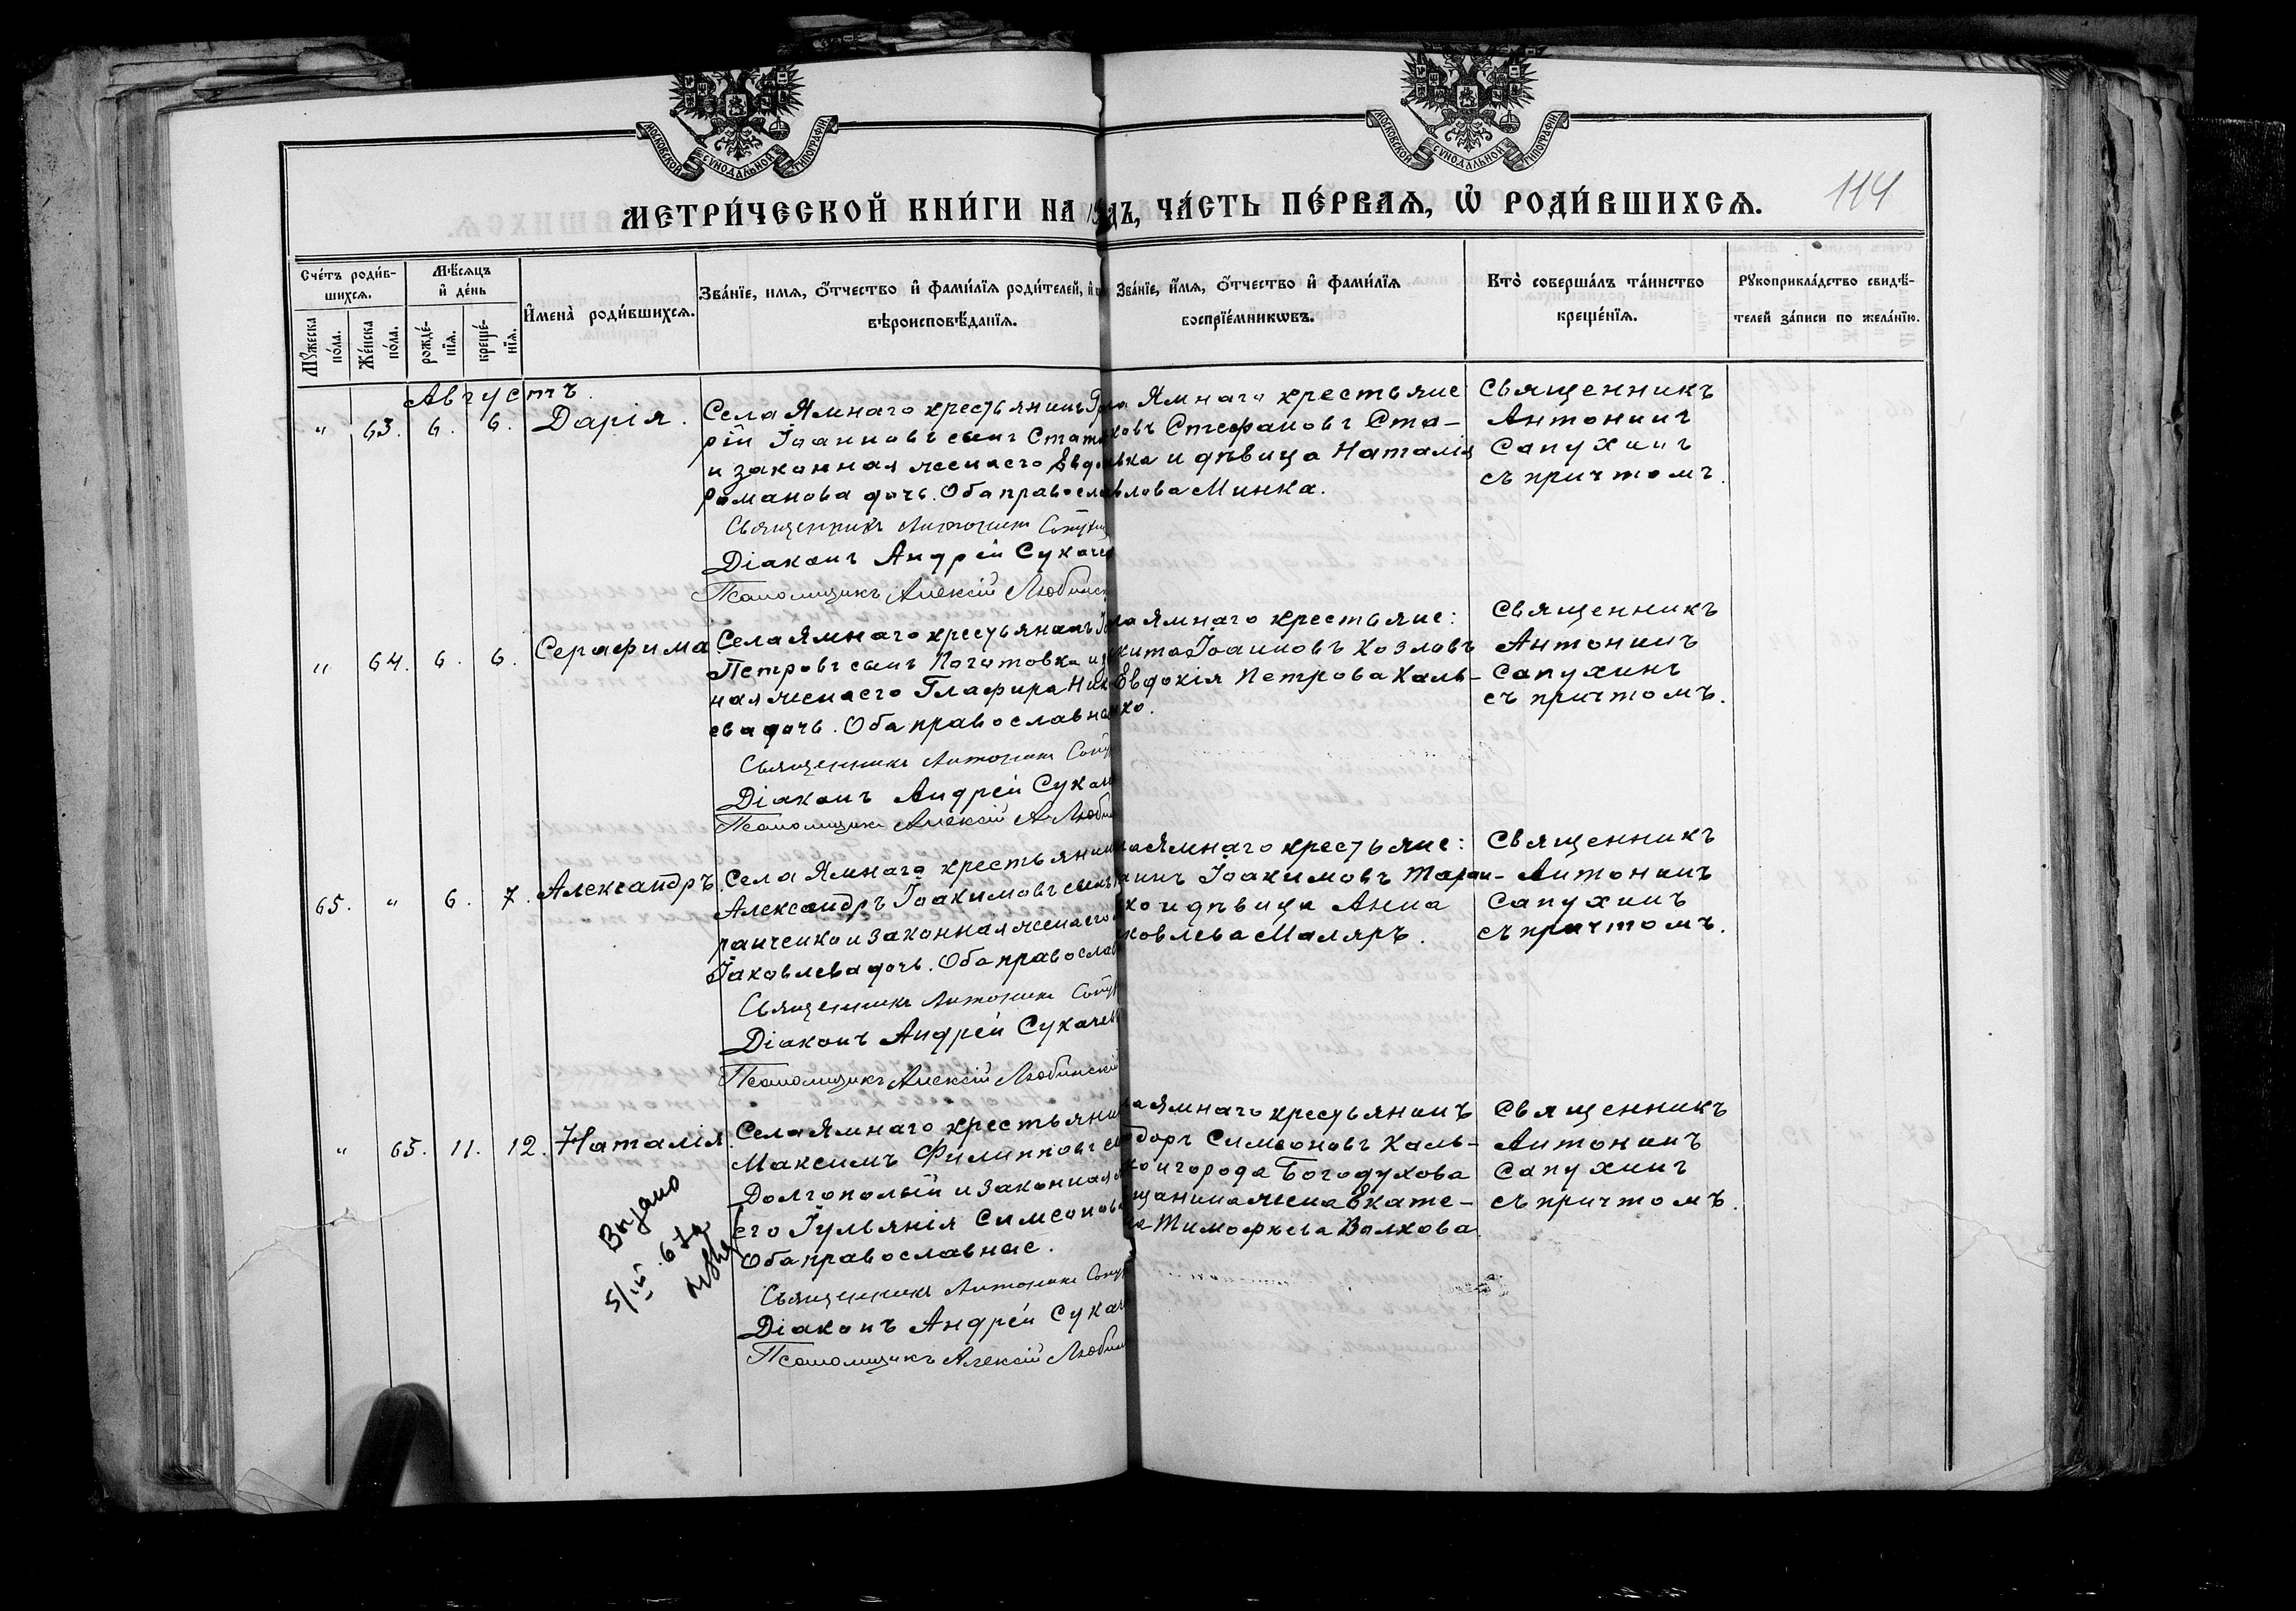 МОСКОВСКОЙ СѴНОДАЛЬНОЙ ТИПОГРАФІИ
МОСКОВСКОЙ СѴНОДАЛЬНОЙ ТИПОГРАФІИ
МЕТРИ́ЧЕСКОЙ КНИ́ГИ НА ЧА́СТЬ ПЕ́РВАѦ, Ѡ҆ РОДИ́ВШИХСѦ.
114
Сче́тъ роди́в-
шихсѧ.
Мꙋ́жеска
по́ла.
Же́нска
по́ла.
Мѣ́сѧцъ
и҆ де́нь
рожде́-
нїѧ.
креще́-
нїѧ.
И҆мена̀ роди́вшихсѧ.
Зва́нїе, имѧ, ѻ҆́тчество и҆ фами́лїѧ роди́телей, и҆
вѣроисповѣ́данїѧ.
Зва́нїе, и҆́мѧ, ѻ҆́тчество и҆ фами́лїѧ
воспрїе́мникѡвъ.
Кто̀ соверша́лъ та́инство
креще́нїѧ.
Рꙋкоприкла́дство свидѣ́-
телей за́писи по жела́нїю.
Августъ.
" 63. 6. 6. Дарія.
Села Ямнаго крестьянинъ
рій Іоанновъ сынъ
и законная жена его
Романова дочь. Оба
Священникъ Антонинъ
Діаконъ Андрей
Псаломщикъ Алексій
Ямнаго крестьяне
Стефановъ Ста-
и дѣвица Наталія
Минка.
Священникъ
Антонинъ
Сапухинъ
съ причтомъ.
" 64. 6. 6. Серафима
Села Ямнаго крестьянинъ
Петровъ сынъ Поготовка
ная жена его Глафира
ева дочь. Оба
Священникъ Антонинъ
Діаконъ Андрей
Псаломщикъ Алексій
Ямнаго крестьяне:
Іоанновъ Козловъ
Евдокія Петрова Каль-
Священникъ
Антонинъ
Сапухинъ
съ причтомъ.
65. " 6. 7. Александръ.
Села Ямнаго
Александръ Іоакимовъ сынъ
ранченко и законная жена его
Іаковлева дочь. Оба
Священникъ Антонинъ
Діаконъ Андрей
Псаломщикъ Алексій Любинскій
Ямнаго крестьяне:
Іоакимовъ Таран-
и дѣвица Анна
Маляръ.
Священникъ
Антонинъ
Сапухинъ
съ причтомъ.
" 65. 11. 12. Наталія.
Села Ямнаго
Максимъ Филипповъ
Долгополый и законная
его Іульянія
Оба православные.
Священникъ Антонинъ
Діаконъ Андрей
Псаломщикъ Алексій
Ямнаго крестьянинъ
Симеоновъ Каль-
города Богодухова
жена Екате-
Тимофѣева Волкова
Священникъ
Антонинъ
Сапухинъ
съ причтомъ.
Выдано
5/III 67г